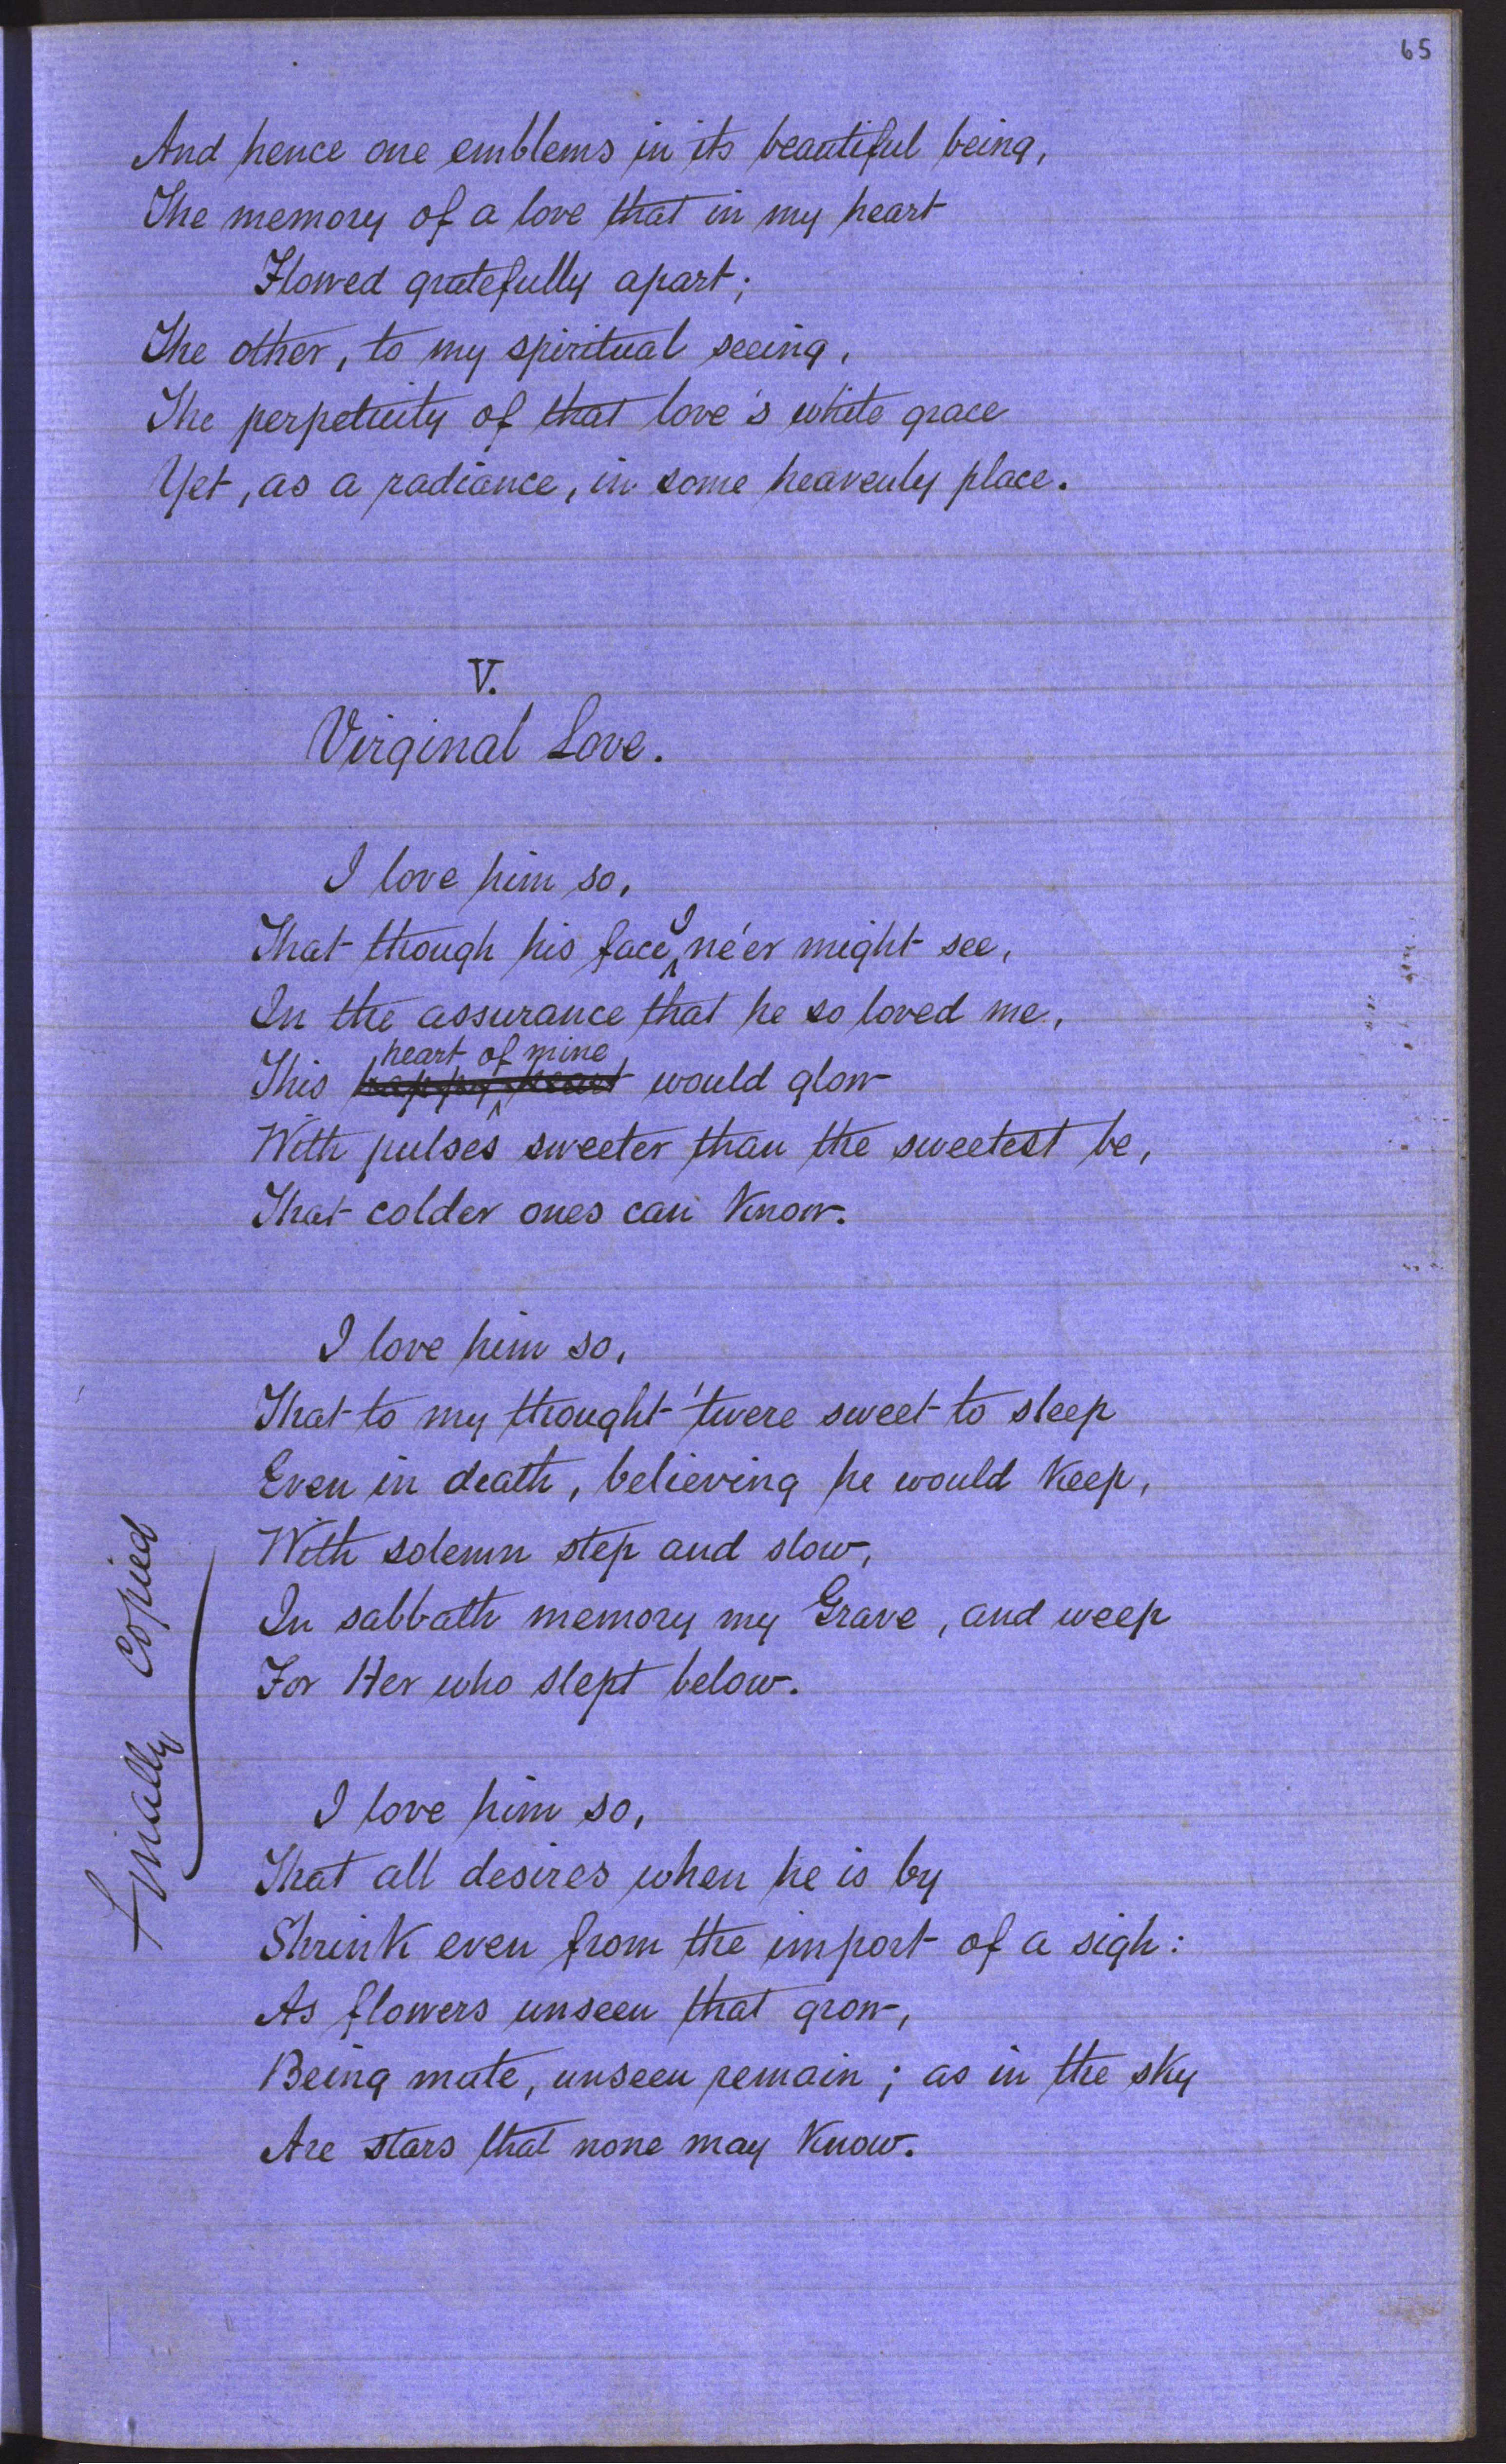 65
And hence one emblems in its beautiful being,
The memory of a love that in my heart
Flowed gratefully apart;
The other, to my spiritual seeing,
The perpetuity of that love's white grace
Yet, as a radiance, in some heavenly place.
V.
Virginal Love.
I love him so,
That though his face I ne'er might see,
In the assurance that he so loved me,
This happy heart heart of mine would glow
With pulses sweeter than the sweetest be,
That colder ones can know.
I love him so,
That to my thought 'twere sweet to sleep
Even in death, believing he would keep,
With solemn step and slow,
In sabbath memory my Grave, and weep
For Her who slept below.
I love him so,
That all desires when he is by
Shrink even from the import of a sigh:
As flowers unseen that grow,
Being mute, unseen remain; as in the sky
Are stars that none may know.
Finally copied